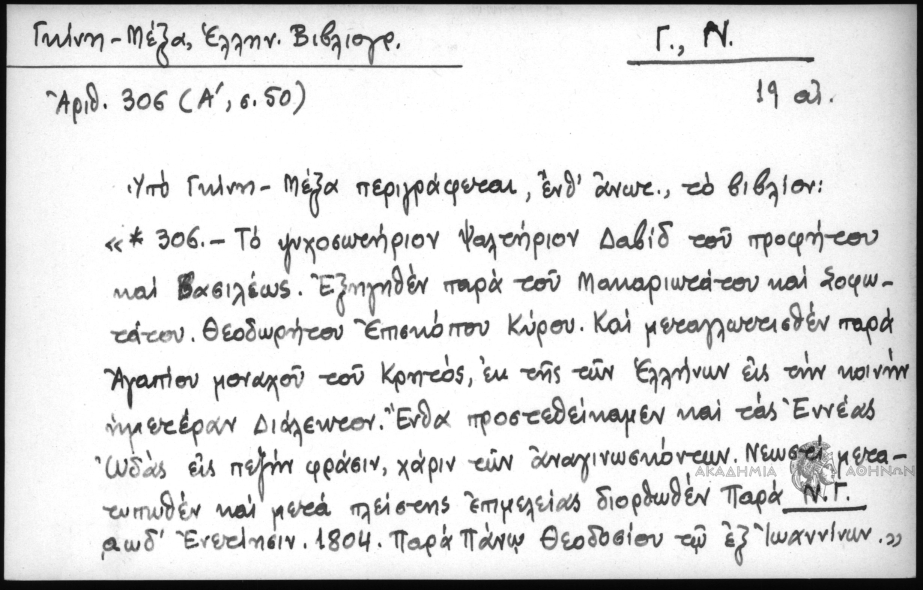 Γκίνη - Μέξα, Ἑλλην. Βιβλιογρ.
Γ., Ν.
Ἀριθ. 306 (Α´, σ. 50)
19 αἰ.
Ὑπό Γκίνη - Μέξα περιγράφεται, ἔνθ' ἀνωτ., τὸ βιβλίον:
«* 306. – Τό ψυχοσωτήριον Ψαλτήριον Δαβίδ τοῦ προφήτου
καί Βασιλέως. Ἐξηγηθέν παρά τοῦ Μακαριωτάτου καί Σοφω-
τάτου. Θεοδωρήτου Ἐπισκόπου Κύρου. Καί μεταγλωττισθέν παρά
Ἀγαπίου μοναχοῦ τοῦ Κρητός, ἐκ τῆς τῶν Ἑλλήνων εἰς τήν κοινήν
ἡμετέραν Διάλεκτον. Ἔνθα προστεθείκαμεν καί τάς Ἐννέας
Ὠδάς εἰς πεζήν φράσιν, χάριν τῶν ἀναγινωσκόντων. Νεωστί μετα-
τυπωθέν καί μετά πλείστης ἐπιμελείας διορθωθέν Παρά Ν.Γ.
αωδ' Ἐνετίησιν. 1804. Παρά Πάνῳ Θεοδοσίου τῷ ἐξ Ἰωαννίνων.»
ΑΚΑΔΗΜΙΑ ΑΘΗΝΩΝ